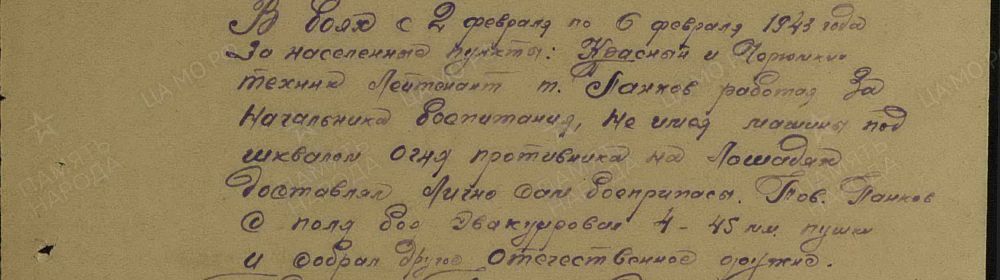 В боях с 2 февраля по 6 февраля 1943 года
За населенные пункты: Красный и
техник Лейтенант т. Панков работая За
Начальника боепитания, Не имея машины под
шквалом огня противника на Лошадях
Доставлял Лично сам боеприпасы. Тов. Панков
С поля боя Эвакуировал 4 - 45 мм. пушки
и собрал другое Отечественное оружие.